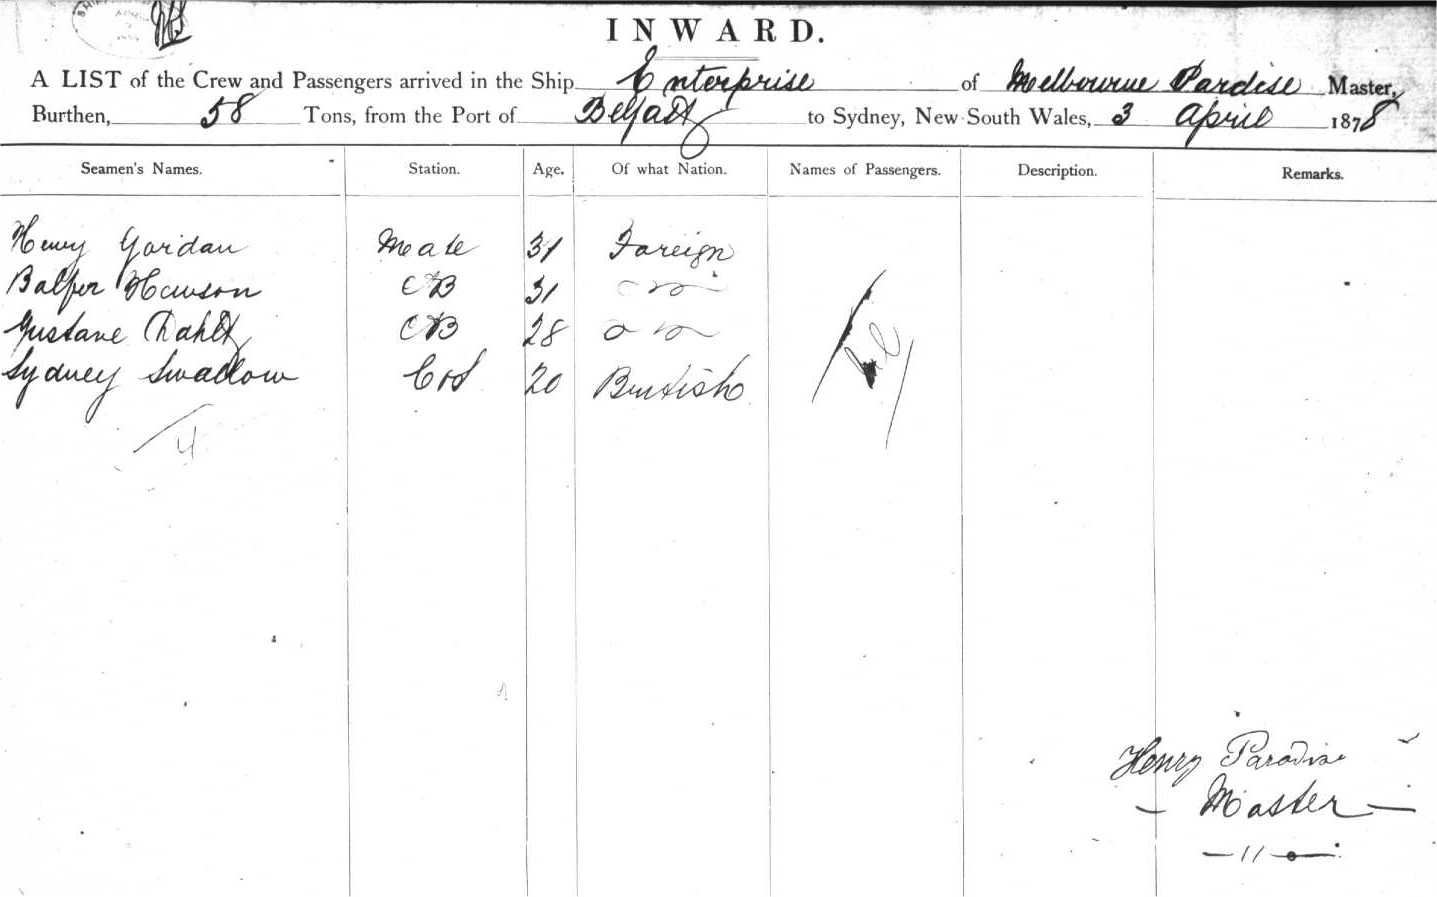 INWARD.
A LIST of the Crew and Passengers arrived in the Ship Enterprise of Melbourne Pardise Master,
Burthen, 58 Tons, from the Port of Belfast to Sydney, New South Wales, 3 April 1878
Seamen's Names. Station. Age. Of what Nation. Names of Passengers. Description. Remarks.
Henry Gordan Mate 31 Foreign
Balfer Hawson AB 31
Gustave AB 28
Sydney Swallow 20 British
4
Henry Paradise
Master